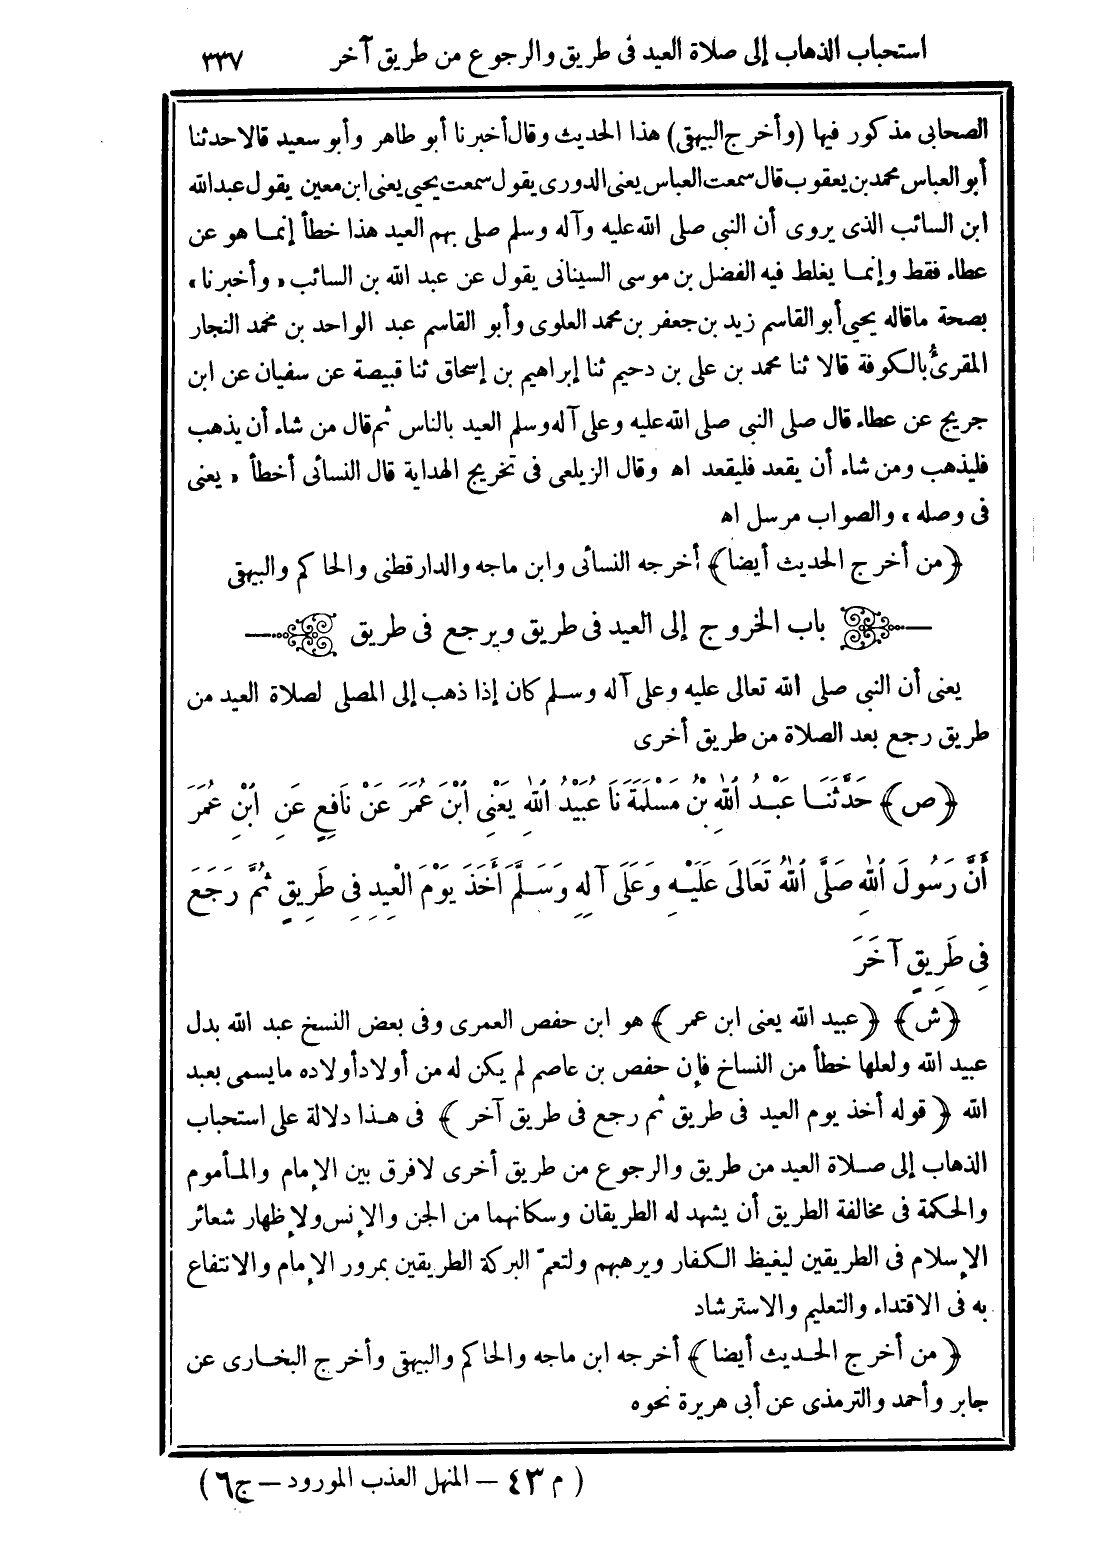 استحباب الذهاب إلى صلاة العيد فى طريق والرجوع من طريق آخر ٣٣٧
الصحابى مذكور فيها (وأخرج البيهقى) هذا الحديث وقال أخبرنا أبو طاهر وأبو سعيد قالا حدثنا
أبو العباس محمد بن يعقوب قال سمعت العباس يعنى الدورى يقول سمعت يحيى يعنى ابن معين يقول عبد الله
ابن السائب الذى يروى أن النبى صلى الله عليه وآله وسلم صلى بهم العيد هذا خطأ إنما هو عن
عطاء فقط وإنما يغلط فيه الفضل بن موسى السينانى يقول عن عبد الله بن السائب «وأخبرنا»
بصحة ماقاله يحيى أبو القاسم زيد بن جعفر بن محمد العلوى وأبو القاسم عبد الواحد بن محمد النجار
المقرئ بالكوفة قالا ثنا محمد بن على بن دحيم ثنا إبراهيم بن إسحاق ثنا قبيصة عن سفيان عن ابن
جريج عن عطاء قال صلى النبى صلى الله عليه وعلى آله وسلم العيد بالناس ثم قال من شاء أن يذهب
فليذهب ومن شاء أن يقعد فليقعد اه وقال الزيلعى فى تخريج الهداية قال النسائى أخطأ «يعنى
فى وصله» والصواب مرسل اه
﴿من أخرج الحديث أيضا﴾ أخرجه النسائى وابن ماجه والدارقطنى والحاكم والبيهقى
باب الخروج إلى العيد فى طريق ويرجع فى طريق
يعنى أن النبى صلى الله تعالى عليه وعلى آله وسلم كان إذا ذهب إلى المصلى لصلاة العيد من
طريق رجع بعد الصلاة من طريق أخرى
﴿ص﴾ حَدَّثَنَا عَبْدُ اللهِ بْنُ مَسْلَمَةَ نَا عُبَيْدُ اللهِ يَعْنِى ابْنَ عُمَرَ عَنْ نَافِعٍ عَنِ ابْنِ عُمَرَ
أَنَّ رَسُولَ اللهِ صَلَّى اللهُ تَعَالَى عَلَيْهِ وَعَلَى آلِهِ وَسَلَّمَ أَخَذَ يَوْمَ الْعِيدِ فِى طَرِيقٍ ثُمَّ رَجَعَ
فِى طَرِيقٍ آخَرَ
﴿ش﴾ ﴿عبيد الله يعنى ابن عمر﴾ هو ابن حفص العمرى وفى بعض النسخ عبد الله بدل
عبيد الله ولعلها خطأ من النساخ فإن حفص بن عاصم لم يكن له من أولاد أولاده مايسمى بعبد
الله ﴿قوله أخذ يوم العيد فى طريق ثم رجع فى طريق آخر﴾ فى هذا دلالة على استحباب
الذهاب إلى صلاة العيد من طريق والرجوع من طريق أخرى لافرق بين الإمام والمأموم
والحكمة فى مخالفة الطريق أن يشهد له الطريقان وسكانهما من الجن والإنس ولإظهار شعائر
الإسلام فى الطريقين ليغيظ الكفار ويرهبهم ولتعمّ البركة الطريقين بمرور الإمام والانتفاع
به فى الاقتداء والتعليم والاسترشاد
﴿من أخرج الحديث أيضا﴾ أخرجه ابن ماجه والحاكم والبيهقى وأخرج البخارى عن
جابر وأحمد والترمذى عن أبى هريرة نحوه
(م ٤٣ – المنهل العذب المورود – ج ٦)